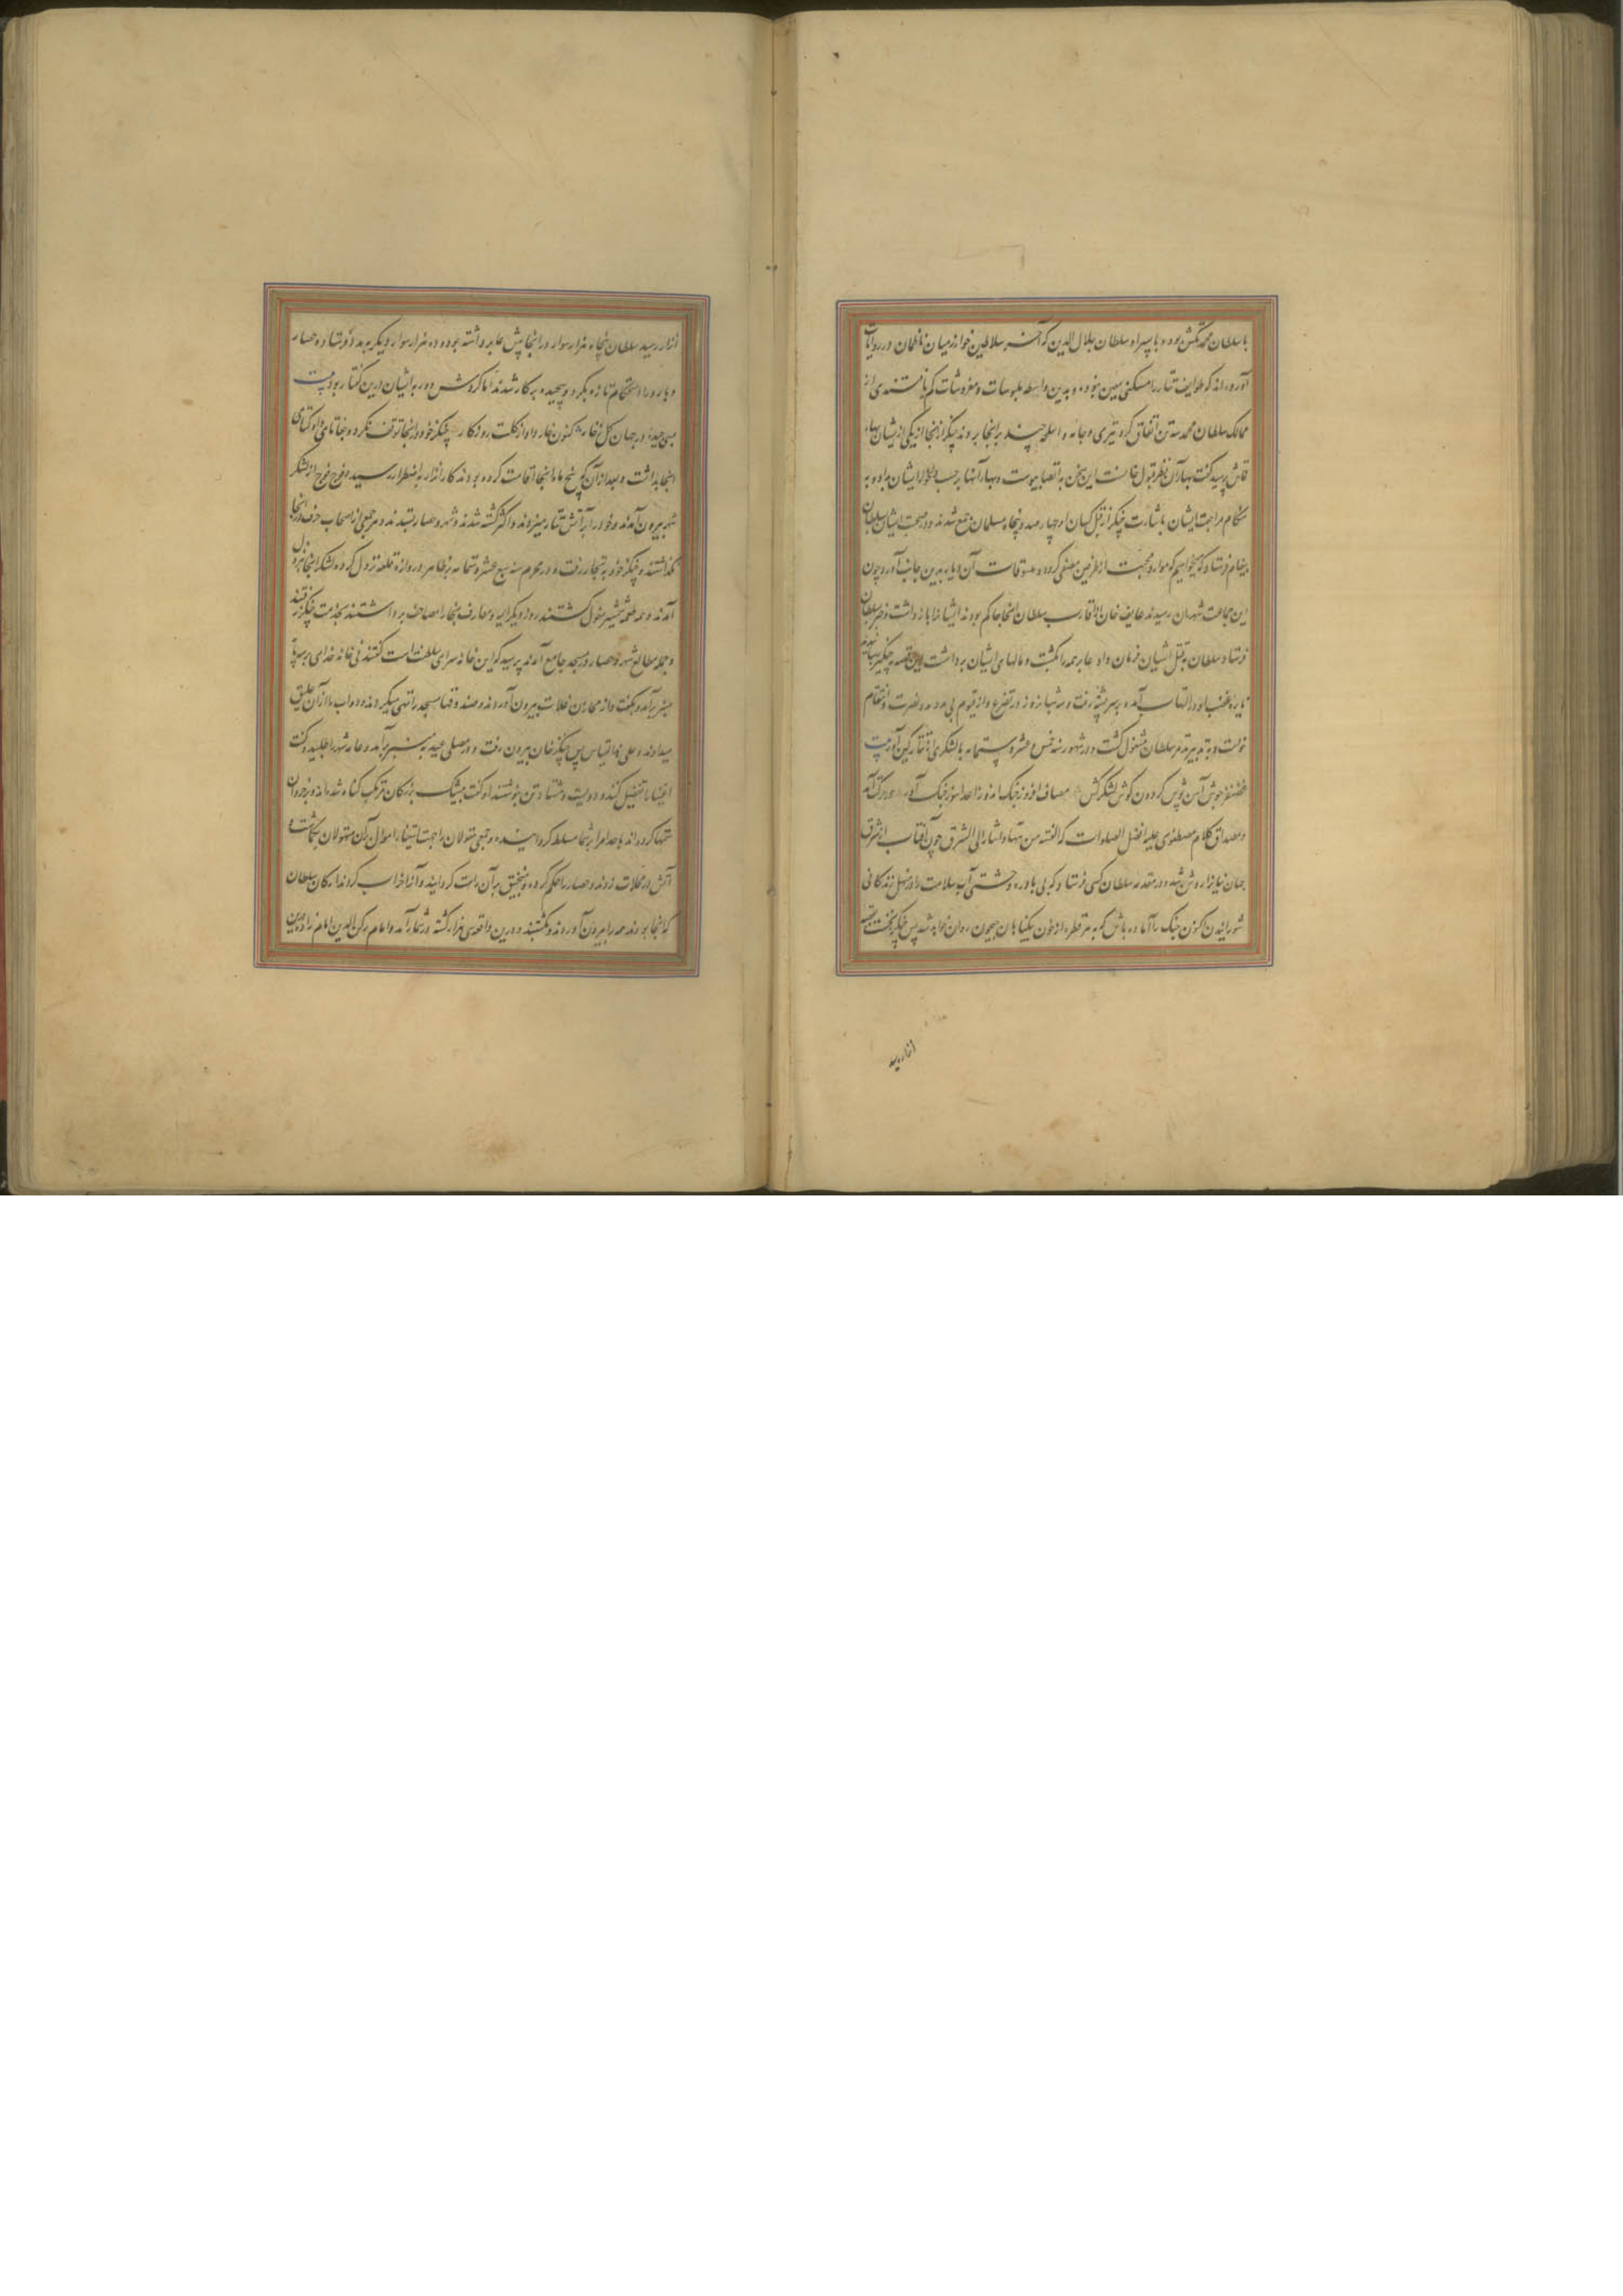 با سلطان محمد تکش بود و با پسر او سلطان جلال الدین که آخر سلاطین خوارزمیان ناظمان در روایات
آورده‌اند که طوایف تتار را مسکنی معین نبود و بدین واسطه ملبوسات و مفروشات کم یافتندی از
ممالک سلطان محمد سه تن اتفاق کرده و جامه و چند برانجا بردند چنکز از آنجا از یکی ازیشان بهاء
قماش پرسید گفت بهاء آن نظر قبول خانست این سخن به بپیوست و بهاء آنها برحسب ایشان بداد و به
هنکام مراجعت ایشان باشارت چنکز از قبل کسان او چهارصد و پنجاه مسلمان جمع شدند و در صحبت ایشان سلطان
پیغام فرستاد که میخواهیم که مواد محبت از طرفین کرده و آن دیار بدین جانب آورد چون
این جماعت رسیدند غایر خان از اقارب سلطان انجا حاکم بود ایشانرا بازداشت و خبر سلطان
فرستاد سلطان بقتل ایشان فرمان داد غایر همه را بکشت و مالهای ایشان برداشت این قصه چنکیز
نایره غضب او در التهاب آمد و بر سر پشته رفت و سه شبانروز در تضرع و از قیوم بی مدد نصرت و انتقام
خواست و به تدبیر سلطان مشغول گشت و در شهور سنه خمس عشره و ستمایه با لشکری آورد بیت
غضنفر جوش آهن پوش گردون کوش لشکرکش مصاف افروز جنک اندوز اعدا سوز جنک آور
و مصداق کلام مصطفوی علیه افضل الصلوات که الفتنه من ههنا و اشار الی الشرق چون آفتاب از مشرق
جهانیانرا روشن شد و در مقدمه سلطان کسی فرستاد که آب سلامت را در زندگانی
شورانیدن اکنون جنک را آماده باش که به هر قطره از خون بیگناهان جیحون روان خواهد شد پس چنکیز
اترار رسید
اترار رسید سلطان پنجاه هزار سوار در انجا پیش غایر داشته بود و ده هزار سوار دیکر به مدد فرستاد و حصار
و باره را استحکام تازه بکرد و بکار شدند اما گردش دور با ایشان درین گفتار بود بیت
می چید در جهان گل بی خار کنون خار داد از گلت روزکار چنکز خود انجا توقف نکرد و جغتای و اوکتای
انجا بداشت و بعد از آن که پنج ماه انجا اقامت کرده بودند کار اترار به اضطرار رسید فوج فوج از لشکر
شهر بیرون آمدند و خود را بر آتش تتار میزدند و اکثر کشته شدند و شهر و حصار بستدند و جمعی از اصحاب حرف در انجا
گذاشتند و چنکز خود به بخارا رفت و در محرم سنه سبع عشره و ستمایه بظاهر دروازه قلعه نزول کرده لشکر انجا بیرون
آمدند و همه طعمه شمشیر مغول گشتند روز دیگر ایمه و معارف بخارا مصاحف برداشتند بخدمت چنکز رفتند
و جهه مطالع شهر و حصار در مسجد جامع آمدند پرسید که این خانه سرای سلطانست گفتند نی خانه خدای
منبر برآمد و بگفت و از مخازن غلات بیرون آوردند و صندوقها مسجد را تهی میکردند و دواب را از آن علیق
میدادند و علی هذا القیاس پس چنکز خان بیرون رفت و در مصلی عید به منبر برآمد و عامه شهر را طلبید و گفت
اغنیا را تفصیل کنند دویست و هشتاد تن بنوشتند او گفت بیشک بزرگان مرتکب گناه شده‌اند و
کرده‌اند تا خدا مرا بر شما مسلط گردانیده و جمعی مغولان را جهت استیفاء اموال برآن متمولان بگماشت و
آتش در محلات زدند و حصار را محکم کرده و منجنیق بر آن راست گردانیدند و آنرا خراب کردند ارکان سلطان
که انجا بودند همه را بیرون آوردند و بکشتند و درین واقعه سی هزار کشته در شمار آمد و امام رکن الدین امام زاده